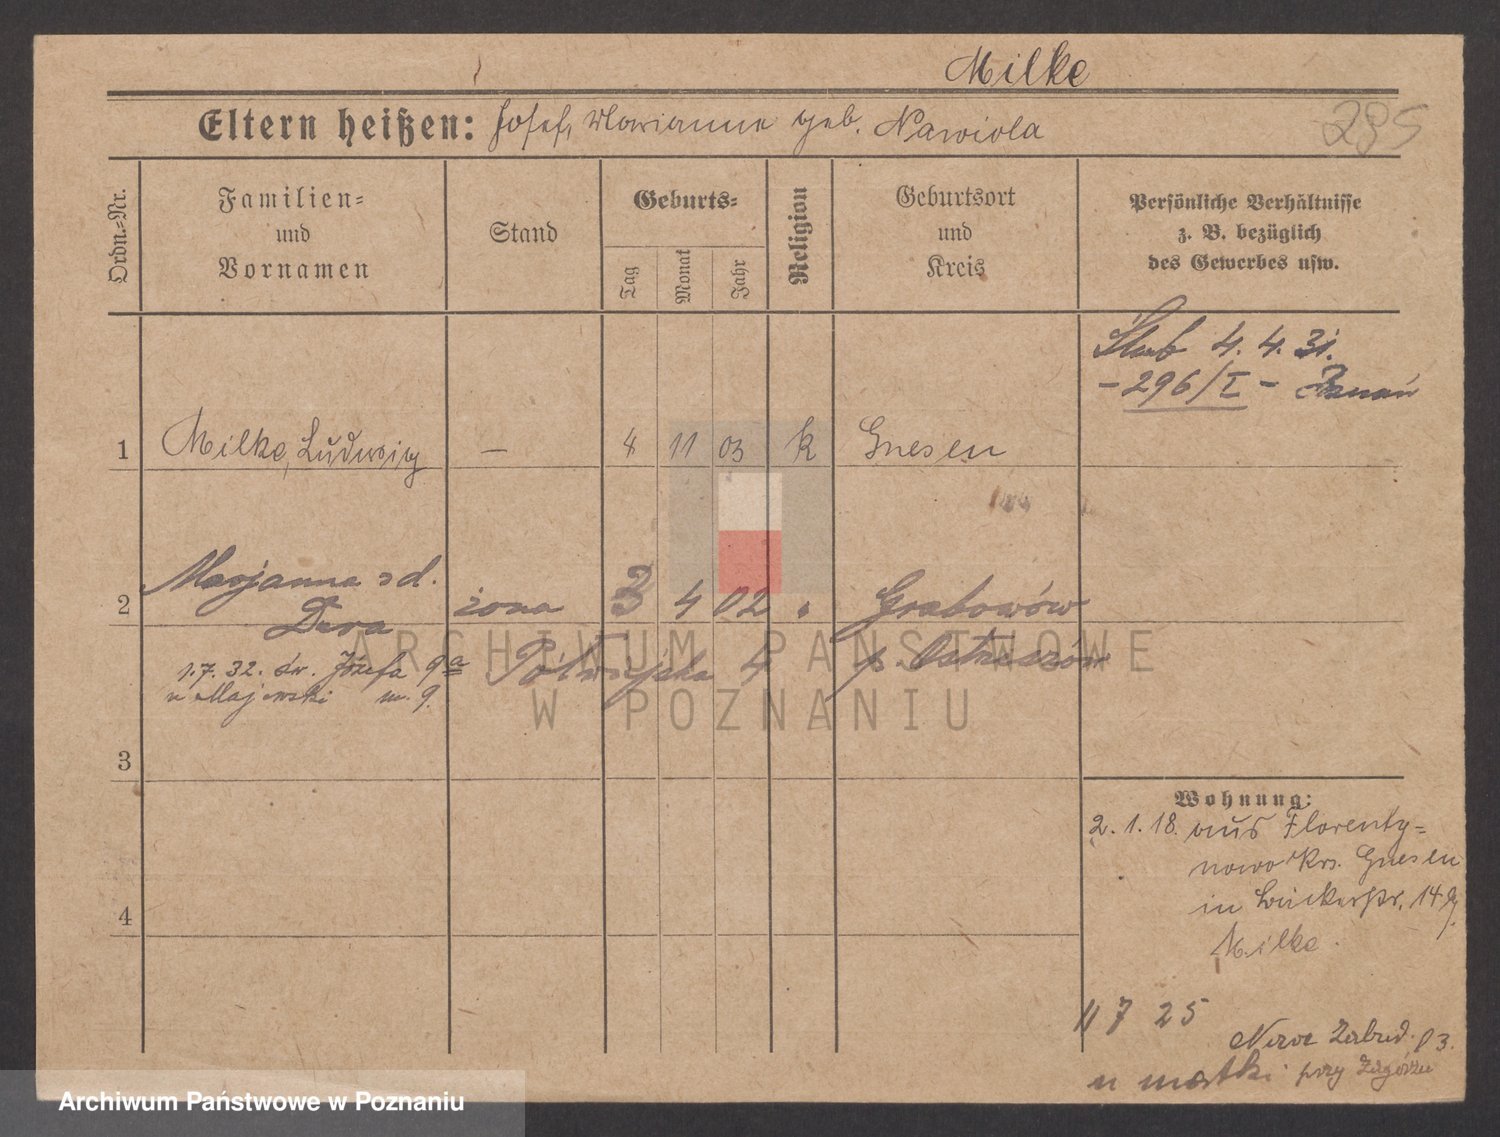 Milke
Eltern heißen: Josef, Marianne geb. Nawiola
285
Ordn.=Nr.
Familien=
und
Vornamen
Stand
Geburts=
Tag
Monat
Jahr
Religion
Geburtsort
und
Kreis
Persönliche Verhältnisse
z. B. bezüglich
des Gewerbes usw.
Ślub 4. 4. 31.
- 296/I - Poznań
1 Milke, Ludwig — 4 11 03 k Gnesen
2 Marjanna zd.
Dera żona 3 4 02 Grabowów
1.7.32. św. Józefa 9a Półwiejska 4 p. Ostrzeszów
u Majewski m. 9.
ARCHIWUM PAŃSTWOWE
W POZNANIU
3
4
Wohnung:
2. 1. 18. aus Florenty=
nowo Krs. Gnesen
in 14
Milke.
11 7 25
Nowe Zabud. 3.
u matki przy Zagórzu
Archiwum Państwowe w Poznaniu